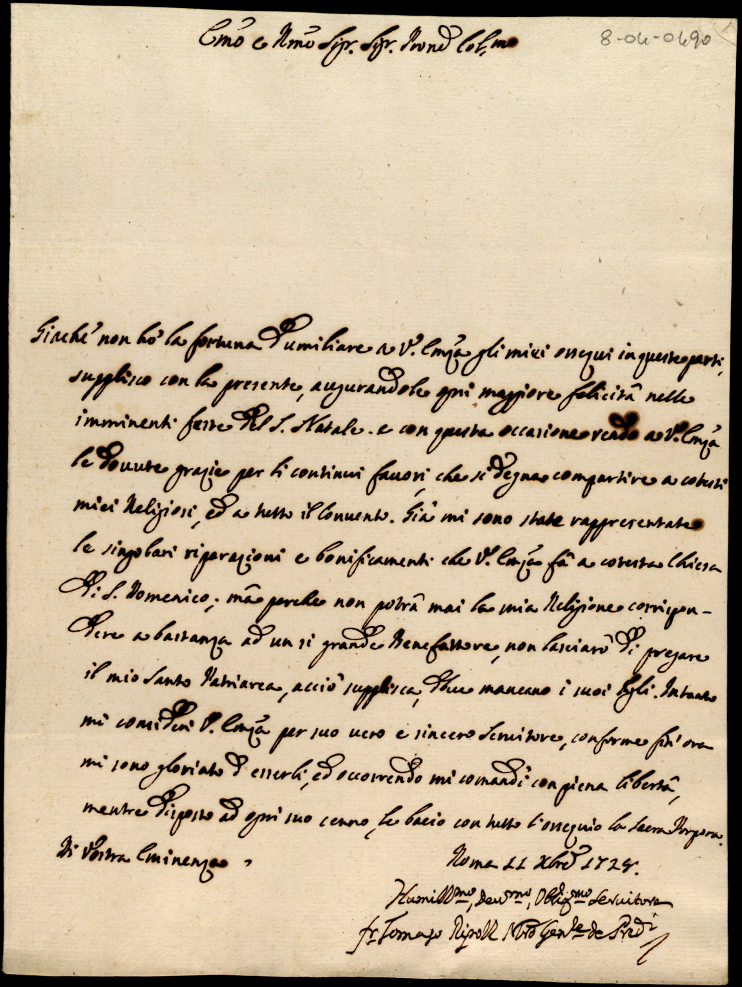 Emo e Rmo Sigr. Sigr. Pron Col.mo
8-04-0490
Giache' non ho' la fortuna d'umiliare a V. Emza gli miei ossequi in queste parti,
supplisco con la presente, augurandole ogni maggiore felicità nelle
imminenti feste del S. Natale. e con questa occasione rendo a V. Emza
le dovute grazie per li continui favori, che si degna compartire a cotesti
miei Religiosi, ed a tutto il Convento. Già mi sono state rappresentate
le singolari riparazioni e bonificamenti che V. Emza fà a cotesta Chiesa
Di S. Domenico; mà perche non potrà mai la mia Religione corrispon-
dere a bastanza ad un si grande Benefattore, non lasciarò di pregare
il mio Santo Patriarca, acciò supplisca, dove mancano i suoi figli. Intanto
mi consideri V. Emza per suo vero e sincero Servitore, conforme fin'ora
mi sono gloriato d'esserli, ed occorrendo mi comandi con piena libertà,
mentre disposto ad ogni suo cenno, le bacio con tutto l'ossequio la Sacra Porpora.
Di Vostra Eminenza
Roma 11 Xbre 1728.
Humillmo, Devmo, Obligmo Servitore
fr. Tomaso Ripoll Mro Genle de Predi